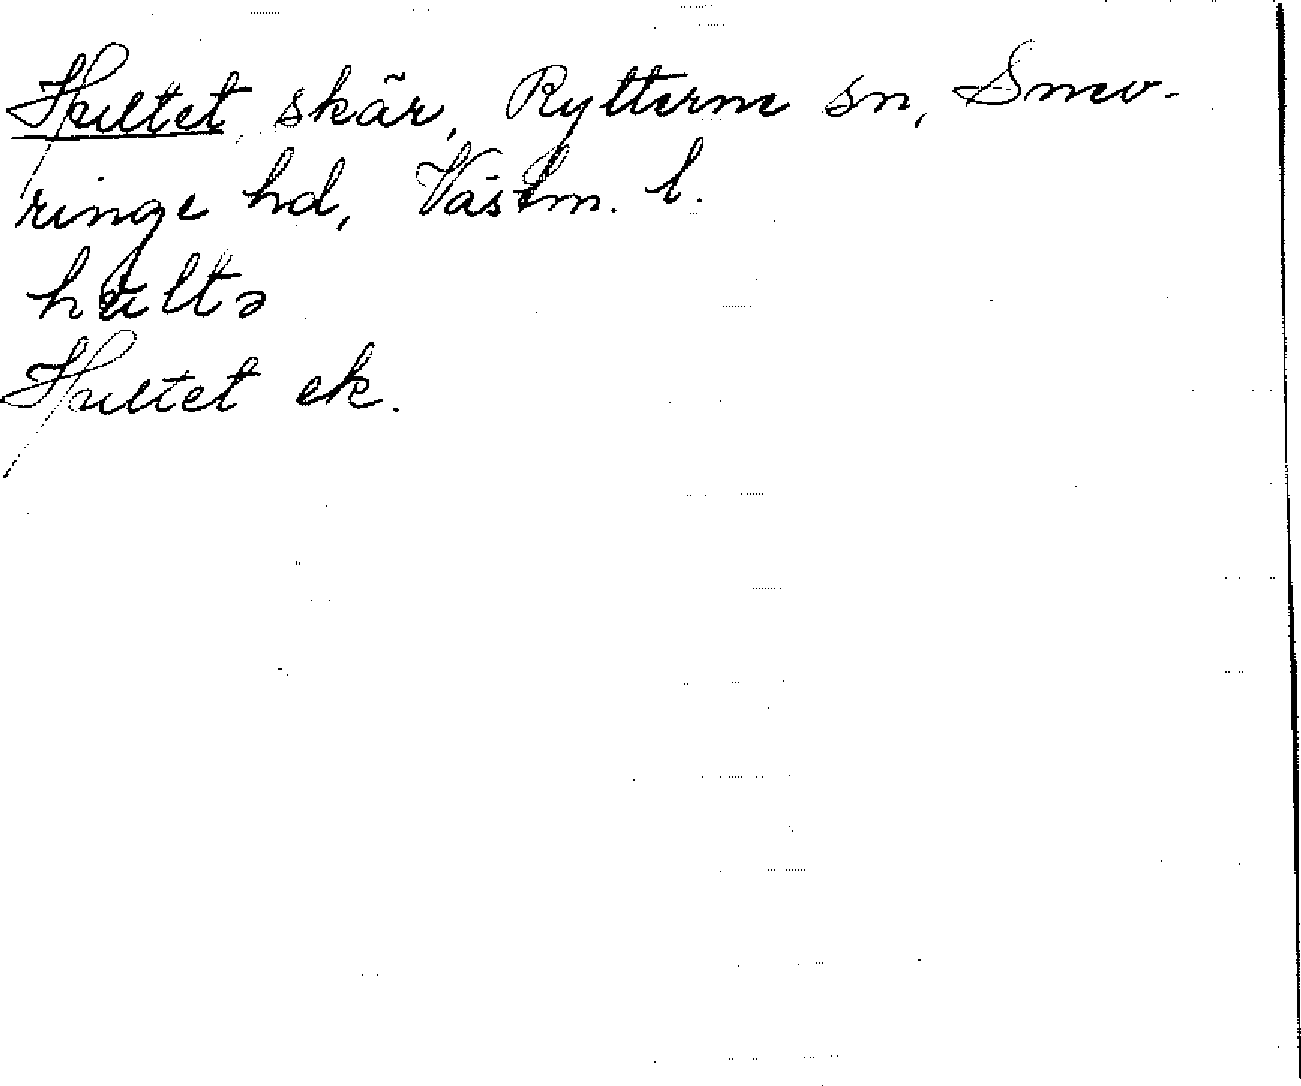 Hultet, skär, Rytterne sn, Snev-
ringe hd, Västm. l.
hultə
Hultet ek.